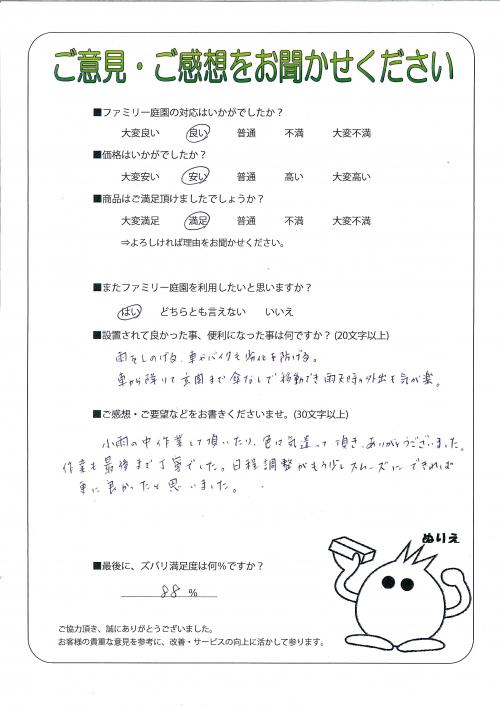 ご意見・ご感想をお聞かせください
■ファミリー庭園の対応はいかがでしたか？
大変良い 良い 普通 不満 大変不満
■価格はいかがでしたか？
大変安い 安い 普通 高い 大変高い
■商品はご満足頂けましたでしょうか？
大変満足 満足 普通 不満 大変不満
⇒よろしければ理由をお聞かせください。
■またファミリー庭園を利用したいと思いますか？
はい どちらとも言えない いいえ
■設置されて良かった事、便利になった事は何ですか？(20文字以上)
雨をしのげる、車やバイクも劣化を防げる。
車から降りて玄関まで傘なしで移動でき雨天時の外出も気が楽。
■ご感想・ご要望などをお書きくださいませ。(30文字以上)
小雨の中作業して頂いたり、色々気遣って頂き、ありがとうございました。
作業も最後まで丁寧でした。日程調整がもう少しスムーズにできれば
更に良かったと思いました。
ぬりえ
■最後に、ズバリ満足度は何％ですか？
88 %
ご協力頂き、誠にありがとうございました。
お客様の貴重な意見を参考に、改善・サービスの向上に活かして参ります。